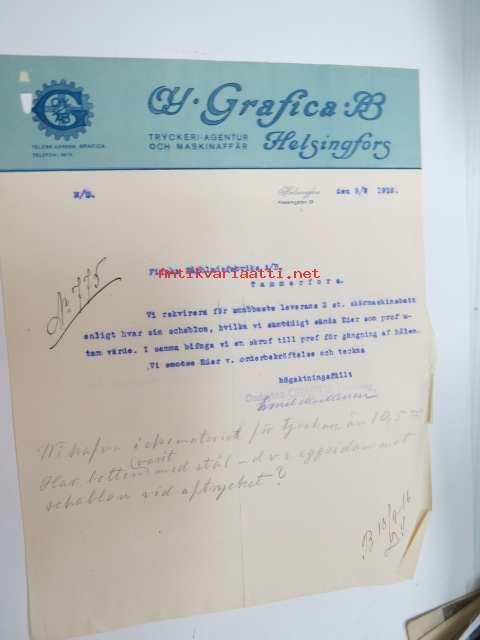 OY·Grafica·AB
TRYCKERI-AGENTUR
OCH MASKINAFFÄR
Helsingfors
GRAFICA
M/B.
Helsingfors den 9/9 1916.
No 775
antiikvariaatti.net
Tammerfors.
Vi rekvirera för snabbaste leverans 2 st. skärmaskinsbett
enligt hvar sin schablon, hvilka vi samtidigt sända Eder som prof u-
tan värde. I samma bifoga vi en skruf till prof för gängning af hålen.
Vi emotse Eder v. orderbekräftelse och teckna
högaktningsfullt
Vi hafva icke materiel för tjockan än 10,5
Har botten varit med stål - d.v.s. eggsidan mot
schablon vid aftrycket?
B 13/9 16